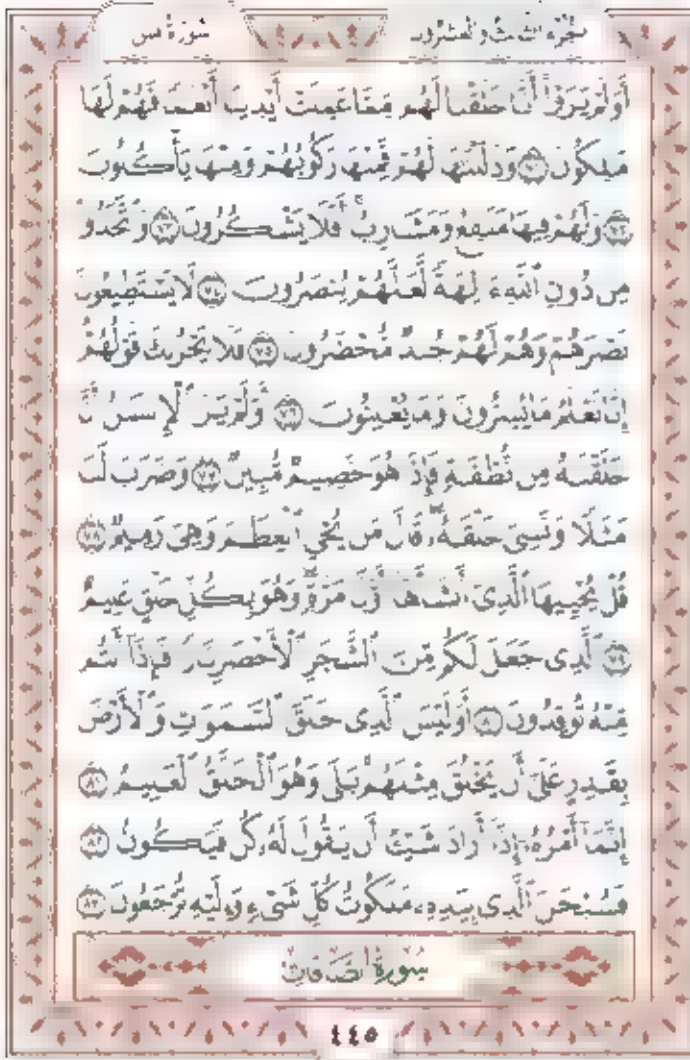 الجزء الثالث والعشرون
سورة يس
أَوَلَمْ يَرَوْا أَنَّا خَلَقْنَا لَهُم مِّمَّا عَمِلَتْ أَيْدِينَا أَنْعَٰمًا فَهُمْ لَهَا
مَٰلِكُونَ ٧١ وَذَلَّلْنَٰهَا لَهُمْ فَمِنْهَا رَكُوبُهُمْ وَمِنْهَا يَأْكُلُونَ
٧٢ وَلَهُمْ فِيهَا مَنَٰفِعُ وَمَشَارِبُ ۖ أَفَلَا يَشْكُرُونَ ٧٣ وَٱتَّخَذُوا۟
مِن دُونِ ٱللَّهِ ءَالِهَةً لَّعَلَّهُمْ يُنصَرُونَ ٧٤ لَا يَسْتَطِيعُونَ
نَصْرَهُمْ وَهُمْ لَهُمْ جُندٌ مُّحْضَرُونَ ٧٥ فَلَا يَحْزُنكَ قَوْلُهُمْ ۘ
إِنَّا نَعْلَمُ مَا يُسِرُّونَ وَمَا يُعْلِنُونَ ٧٦ أَوَلَمْ يَرَ ٱلْإِنسَٰنُ أَنَّا
خَلَقْنَٰهُ مِن نُّطْفَةٍ فَإِذَا هُوَ خَصِيمٌ مُّبِينٌ ٧٧ وَضَرَبَ لَنَا
مَثَلًا وَنَسِيَ خَلْقَهُۥ ۖ قَالَ مَن يُحْيِ ٱلْعِظَٰمَ وَهِيَ رَمِيمٌ ٧٨
قُلْ يُحْيِيهَا ٱلَّذِىٓ أَنشَأَهَآ أَوَّلَ مَرَّةٍ ۖ وَهُوَ بِكُلِّ خَلْقٍ عَلِيمٌ
٧٩ ٱلَّذِى جَعَلَ لَكُم مِّنَ ٱلشَّجَرِ ٱلْأَخْضَرِ نَارًا فَإِذَآ أَنتُم
مِّنْهُ تُوقِدُونَ ٨٠ أَوَلَيْسَ ٱلَّذِى خَلَقَ ٱلسَّمَٰوَٰتِ وَٱلْأَرْضَ
بِقَٰدِرٍ عَلَىٰٓ أَن يَخْلُقَ مِثْلَهُم ۚ بَلَىٰ وَهُوَ ٱلْخَلَّٰقُ ٱلْعَلِيمُ ٨١
إِنَّمَآ أَمْرُهُۥٓ إِذَآ أَرَادَ شَيْـًٔا أَن يَقُولَ لَهُۥ كُن فَيَكُونُ ٨٢
فَسُبْحَٰنَ ٱلَّذِى بِيَدِهِۦ مَلَكُوتُ كُلِّ شَىْءٍ وَإِلَيْهِ تُرْجَعُونَ ٨٣
سورة الصافات
٤٤٥